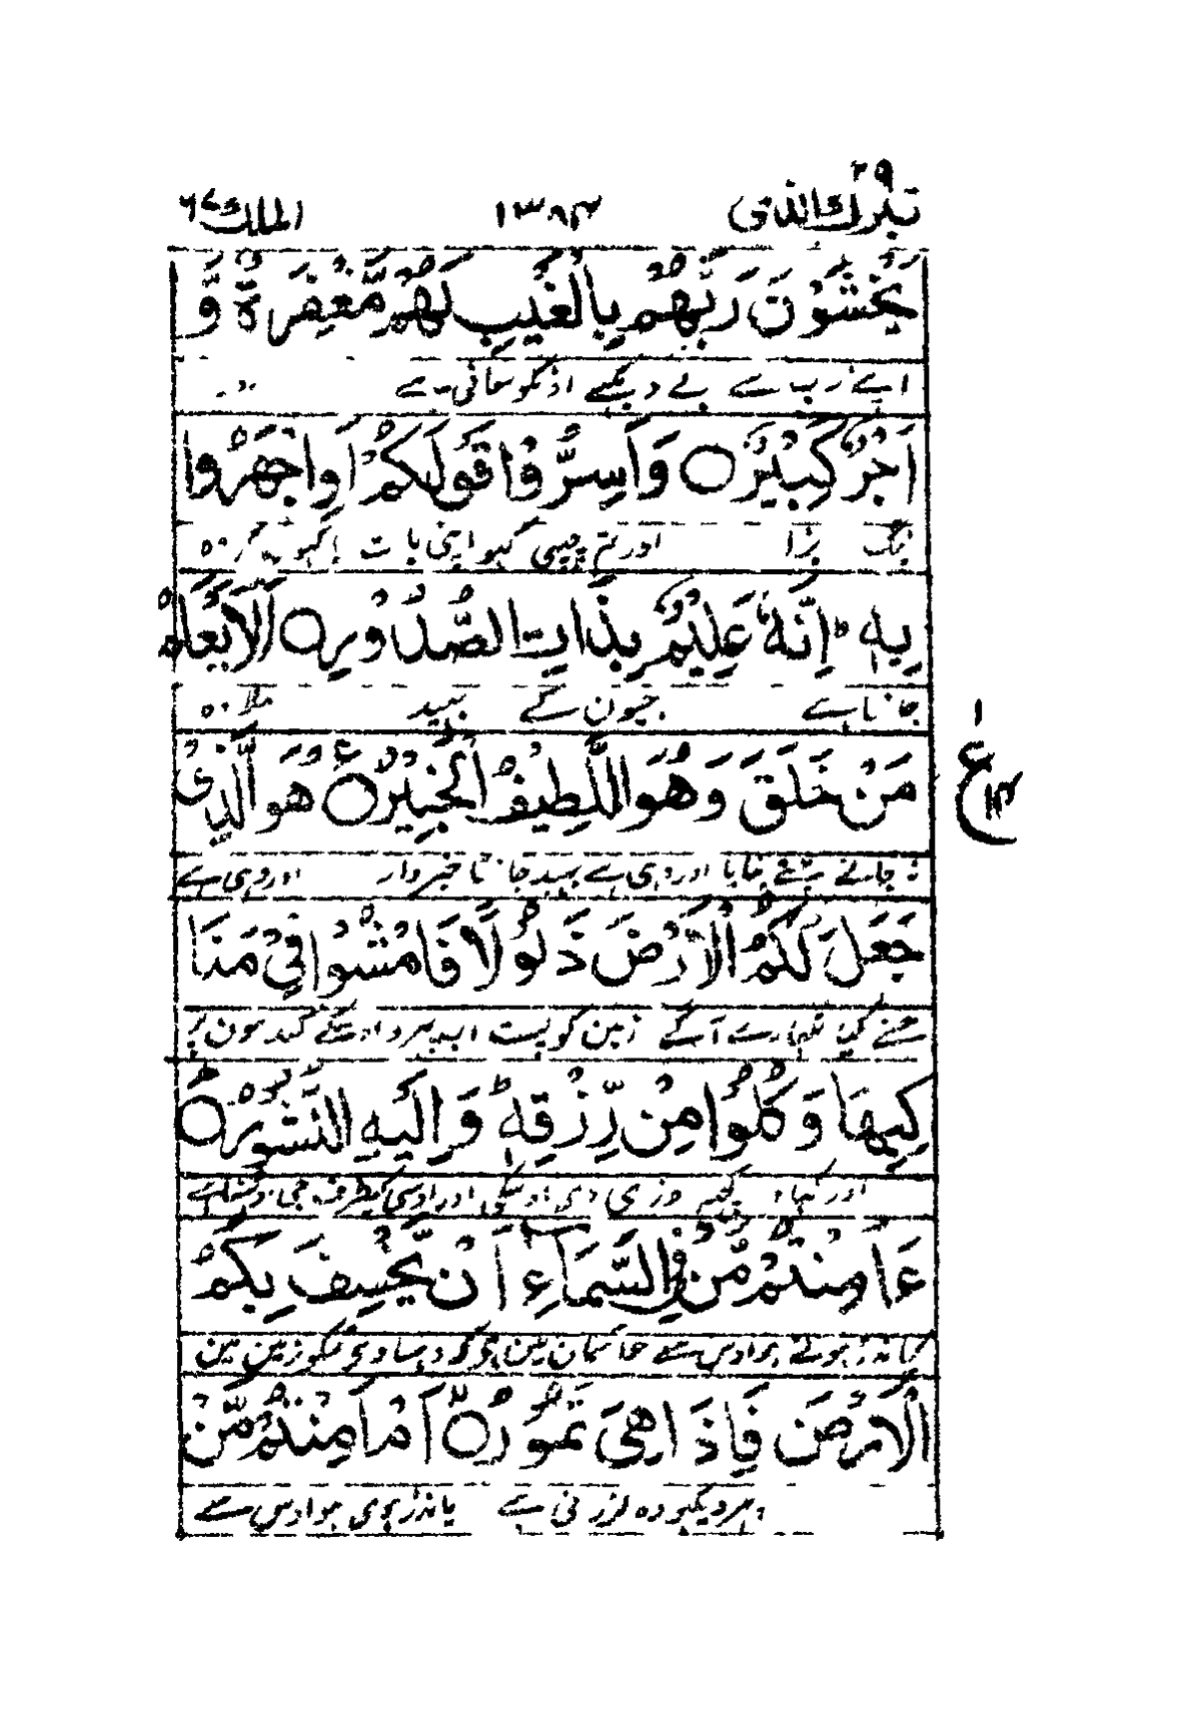 تبٰرك الذى ٢٩ ١٣٨٣ الملك ٦٧
يَخْشَوْنَ رَبَّهُمْ بِالْغَيْبِ لَهُمْ مَّغْفِرَةٌ وَّ
اپنے رب سے بے دیکھے انکو معافی ہے
اَجْرٌ كَبِيْرٌ ○ وَاَسِرُّوْا قَوْلَكُمْ اَوِاجْهَرُوْا
نیگ بڑا اور تم چھپی کہو اپنی بات
بِهٖ ؕ اِنَّهٗ عَلِيْمٌۢ بِذَاتِ الصُّدُوْرِ ○ اَلَا يَعْلَمُ
جانتا ہے جیون کے بہید بہلا وہ
مَنْ خَلَقَ وَهُوَ اللَّطِيْفُ الْخَبِيْرُ ○ هُوَ الَّذِىْ
نہ جانے جسنے بنایا اور وہی ہے بہید جانتا خبردار اور وہی ہے
١ ع ١٤
جَعَلَ لَكُمُ الْاَرْضَ ذَلُوْلًا فَامْشُوْا فِىْ مَنَا
جسنے کیا تمہارے آگے زمین کو پست اب پہرو اوسکے کندہون پر
كِبِهَا وَكُلُوْا مِنْ رِّزْقِهٖ ؕ وَاِلَيْهِ النُّشُوْرُ ○
اور کہاؤ کچہہ روزی دی اوسکی اور اوسی کیطرف جی اوٹہنا ہے
ءَاَمِنْتُمْ مَّنْ فِى السَّمَآءِ اَنْ يَّخْسِفَ بِكُمُ
کیا نڈر ہوئے ہو اوس سے جو آسمان مین ہے کہ دہسا دے تمکو زمین مین
الْاَرْضَ فَاِذَا هِىَ تَمُوْرُ ○ اَمْ اَمِنْتُمْ مَّنْ
پہر دیکہو وہ لرزتی ہے یا نڈر ہوی ہو اوس سے